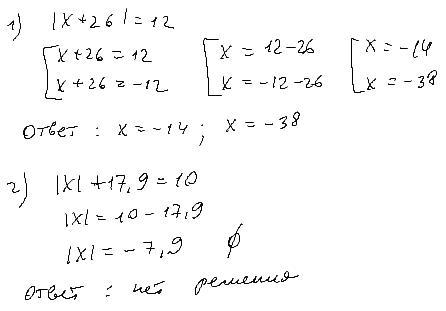 1) |x+26|=12
[x+26=12 [x=12-26 [x=-14
[x+26=-12 [x=-12-26 [x=-38
ответ: x=-14; x=-38
2) |x|+17,9=10
|x|=10-17,9
|x|=-7,9 ∅
ответ: нет решения